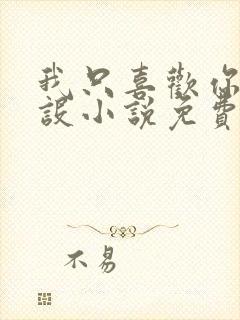 我只喜歡你
設小說免費
不易